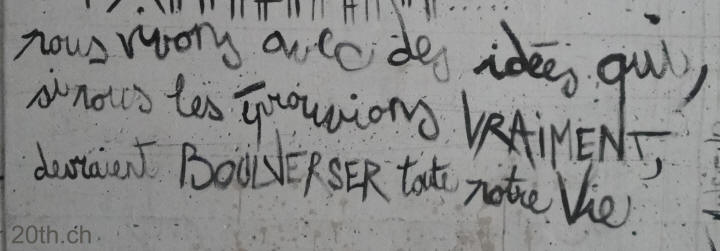 nous vivons avec des idées qui,
si nous les éprouvions VRAIMENT,
devraient BOULVERSER toute notre Vie.
20th.ch